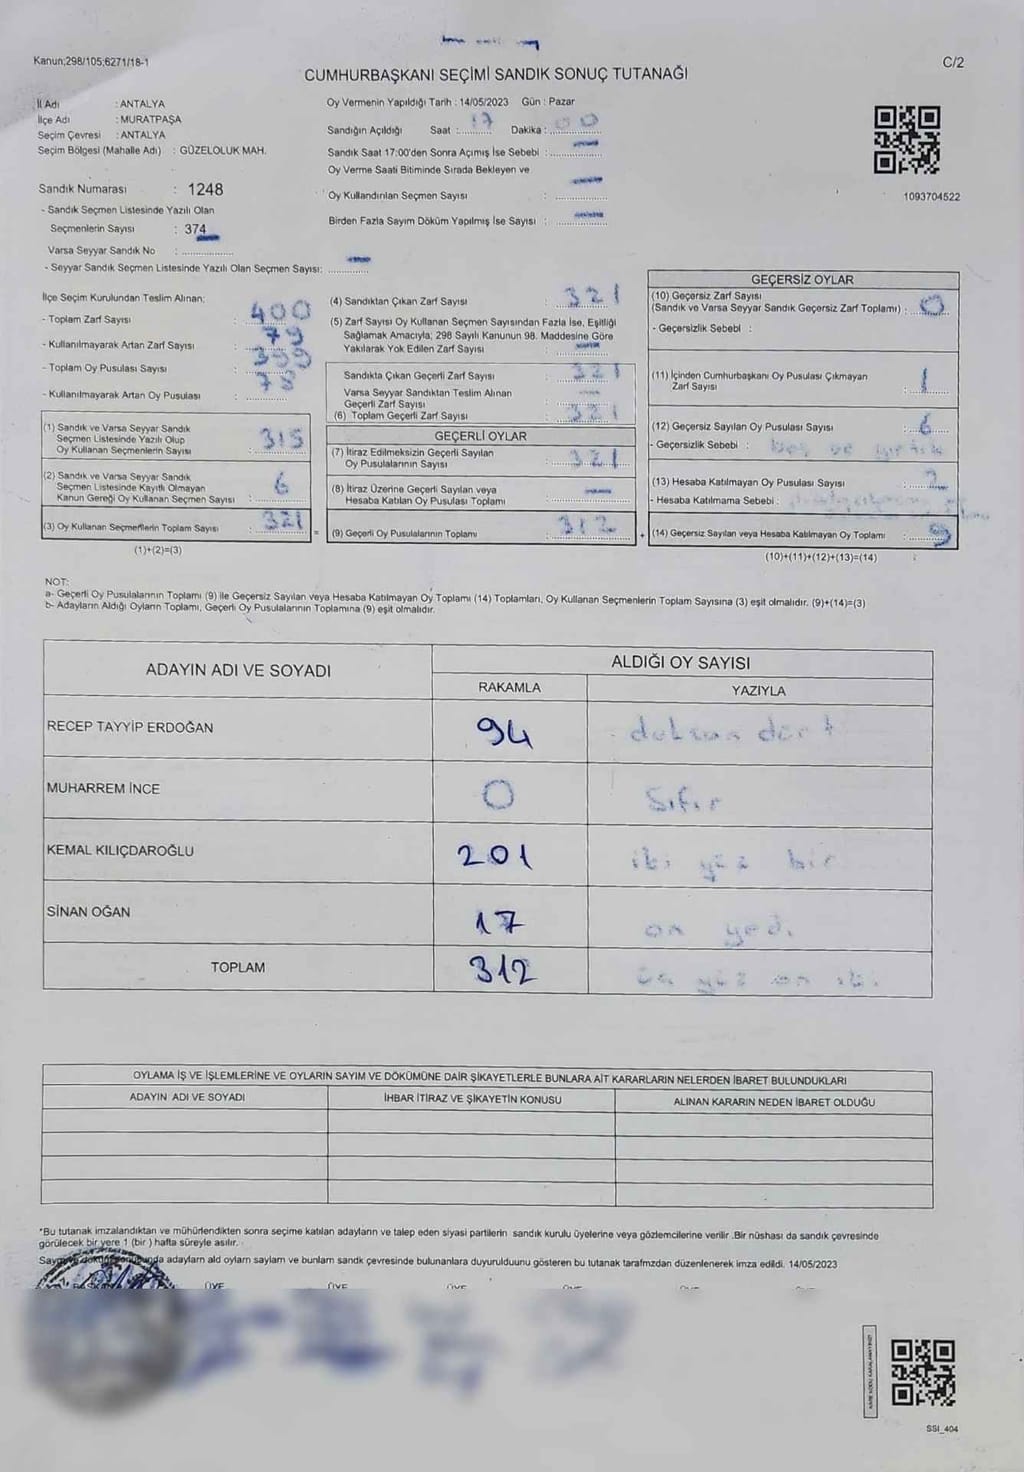 Kanun;298/105;6271/18-1
C/2
CUMHURBAŞKANI SEÇİMİ SANDIK SONUÇ TUTANAĞI
İl Adı : ANTALYA
İlçe Adı : MURATPAŞA
Seçim Çevresi : ANTALYA
Seçim Bölgesi (Mahalle Adı) : GÜZELOLUK MAH.
Sandık Numarası : 1248
- Sandık Seçmen Listesinde Yazılı Olan
Seçmenlerin Sayısı : 374
Varsa Seyyar Sandık No :
- Seyyar Sandık Seçmen Listesinde Yazılı Olan Seçmen Sayısı:
Oy Vermenin Yapıldığı Tarih : 14/05/2023 Gün : Pazar
Sandığın Açıldığı Saat : 17 Dakika : 00
Sandık Saat 17:00'den Sonra Açımış İse Sebebi :
Oy Verme Saati Bitiminde Sırada Bekleyen ve
Oy Kullandırılan Seçmen Sayısı :
Birden Fazla Sayım Döküm Yapılmış İse Sayısı :
1093704522
İlçe Seçim Kurulundan Teslim Alınan;
- Toplam Zarf Sayısı : 400
- Kullanılmayarak Artan Zarf Sayısı : 79
- Toplam Oy Pusulası Sayısı : 399
- Kullanılmayarak Artan Oy Pusulası : 78
(1) Sandık ve Varsa Seyyar Sandık
Seçmen Listesinde Yazılı Olup
Oy Kullanan Seçmenlerin Sayısı : 315
(2) Sandık ve Varsa Seyyar Sandık
Seçmen Listesinde Kayıtlı Olmayan
Kanun Gereği Oy Kullanan Seçmen Sayısı : 6
(3) Oy Kullanan Seçmenlerin Toplam Sayısı : 321
(1)+(2)=(3)
(4) Sandıktan Çıkan Zarf Sayısı : 321
(5) Zarf Sayısı Oy Kullanan Seçmen Sayısından Fazla İse, Eşitliği
Sağlamak Amacıyla; 298 Sayılı Kanunun 98. Maddesine Göre
Yakılarak Yok Edilen Zarf Sayısı :
Sandıkta Çıkan Geçerli Zarf Sayısı : 321
Varsa Seyyar Sandıktan Teslim Alınan
Geçerli Zarf Sayısı :
(6) Toplam Geçerli Zarf Sayısı : 321
GEÇERLİ OYLAR
(7) İtiraz Edilmeksizin Geçerli Sayılan
Oy Pusulalarının Sayısı : 321
(8) İtiraz Üzerine Geçerli Sayılan veya
Hesaba Katılan Oy Pusulası Toplamı :
= (9) Geçerli Oy Pusulalarının Toplamı : 312
GEÇERSİZ OYLAR
(10) Geçersiz Zarf Sayısı
(Sandık ve Varsa Seyyar Sandık Geçersiz Zarf Toplamı) : 0
- Geçersizlik Sebebi :
(11) İçinden Cumhurbaşkanı Oy Pusulası Çıkmayan
Zarf Sayısı : 1
(12) Geçersiz Sayılan Oy Pusulası Sayısı : 6
- Geçersizlik Sebebi : boş ve yırtık
(13) Hesaba Katılmayan Oy Pusulası Sayısı : 2
- Hesaba Katılmama Sebebi :
+ (14) Geçersiz Sayılan veya Hesaba Katılmayan Oy Toplamı : 9
(10)+(11)+(12)+(13)=(14)
NOT:
a- Geçerli Oy Pusulalarının Toplamı (9) ile Geçersiz Sayılan veya Hesaba Katılmayan Oy Toplamı (14) Toplamları, Oy Kullanan Seçmenlerin Toplam Sayısına (3) eşit olmalıdır. (9)+(14)=(3)
b- Adayların Aldığı Oyların Toplamı, Geçerli Oy Pusulalarının Toplamına (9) eşit olmalıdır.
ADAYIN ADI VE SOYADI
ALDIĞI OY SAYISI
RAKAMLA YAZIYLA
RECEP TAYYİP ERDOĞAN 94 doksan dört
MUHARREM İNCE 0 Sıfır
KEMAL KILIÇDAROĞLU 201 iki yüz bir
SİNAN OĞAN 17 on yedi
TOPLAM 312 üç yüz on iki
OYLAMA İŞ VE İŞLEMLERİNE VE OYLARIN SAYIM VE DÖKÜMÜNE DAİR ŞİKAYETLERLE BUNLARA AİT KARARLARIN NELERDEN İBARET BULUNDUKLARI
ADAYIN ADI VE SOYADI İHBAR İTİRAZ VE ŞİKAYETİN KONUSU ALINAN KARARIN NEDEN İBARET OLDUĞU
*Bu tutanak imzalandıktan ve mühürlendikten sonra seçime katılan adayların ve talep eden siyasi partilerin sandık kurulu üyelerine veya gözlemcilerine verilir .Bir nüshası da sandık çevresinde
görülecek bir yere 1 (bir ) hafta süreyle asılır.
adaylarn ald oylarn saylarn ve bunlarn sandk çevresinde bulunanlara duyurulduunu gösteren bu tutanak tarafmzdan düzenlenerek imza edildi. 14/05/2023
ÜYE ÜYE ÜYE ÜYE
KARE KODU KARALAMAYINIZ!
SSI_404